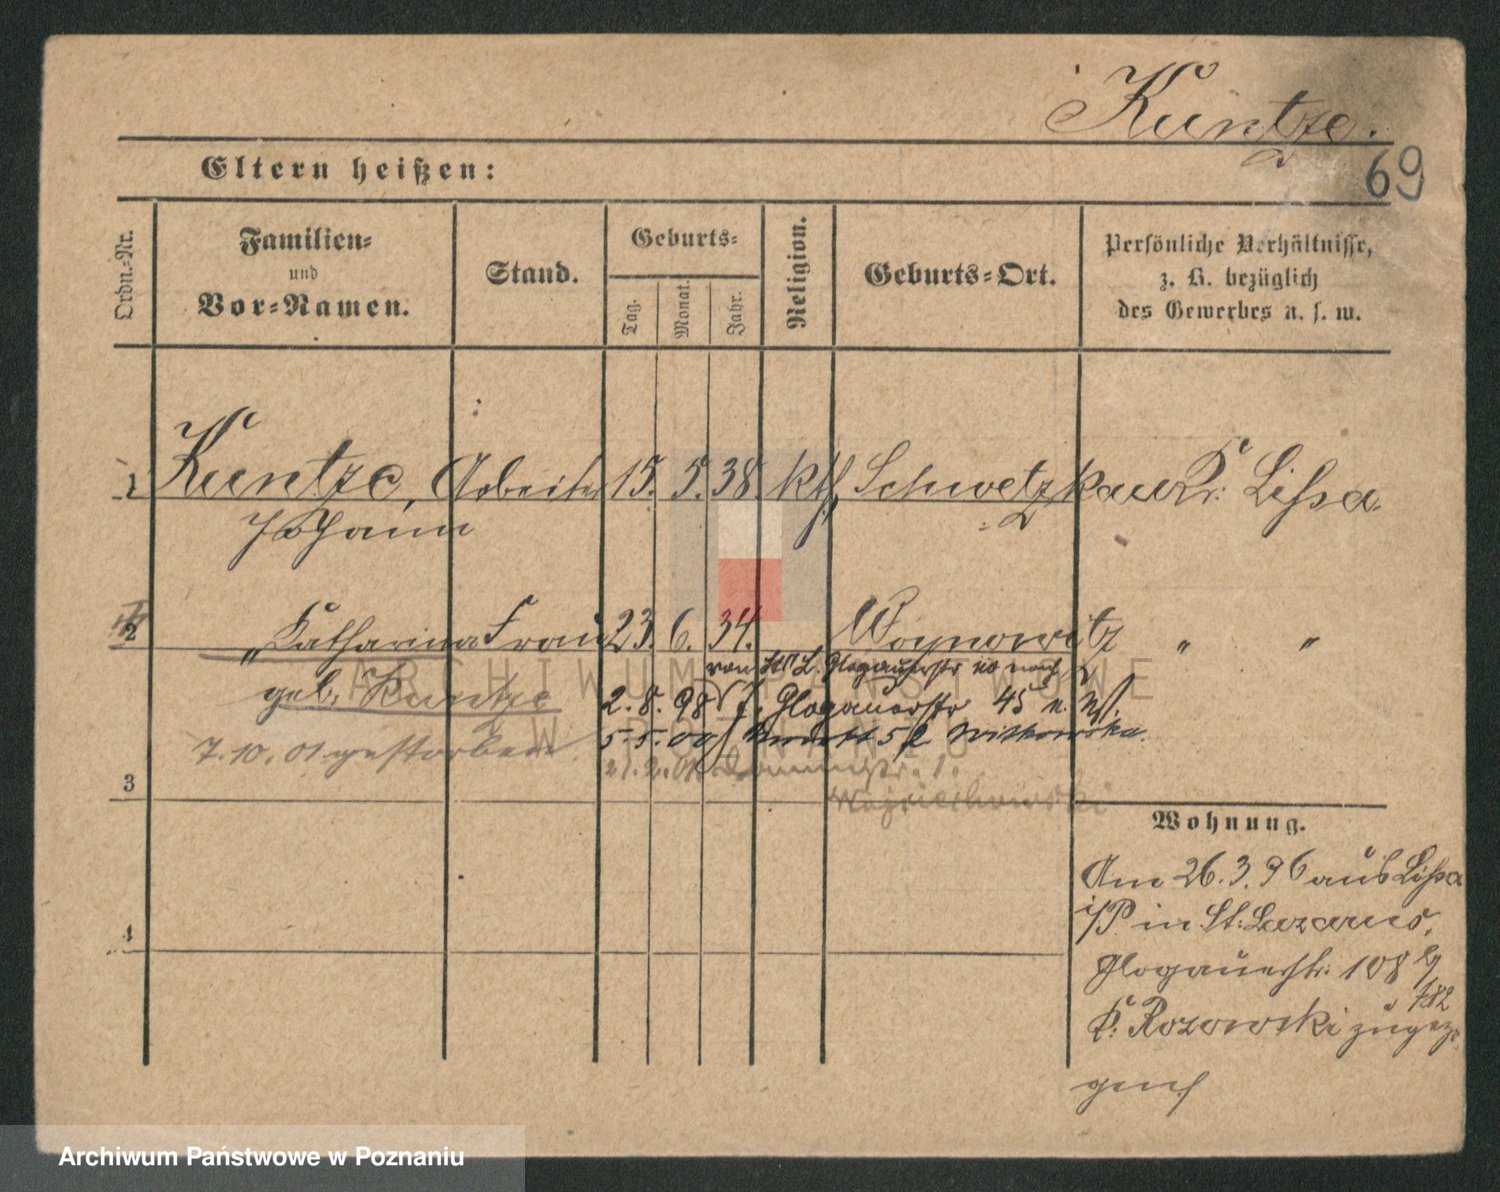 Kuntze.
69
Eltern heißen:
Ordn.-Nr.
Familien-
und
Vor-Namen.
Stand.
Geburts-
Tag.
Monat.
Jahr.
Religion.
Geburts-Ort.
Persönliche Verhältnisse,
z. B. bezüglich
des Gewerbes u. s. w.
1 Kuntze, Arbeiter 15. 5. 38. kth. Schwetzkau Kr. Lissa.
Johann
2 " Katharina Frau 23. 6. 34. Woynowitz " "
geb. Kuntze
von Glogauerstr nach
2. 8. 98 Glogauerstr 45
7.10.01 gestorben
5.5.00 Witkowska.
21.2.01
Wojciechowski
3
4
Wohnung.
Am 26.3.96 aus Lissa
i/P in St. Lazarus,
Glogauerstr. 108
b. Rozowski zugezo
gen
ARCHIWUM PAŃSTWOWE
W POZNANIU
Archiwum Państwowe w Poznaniu